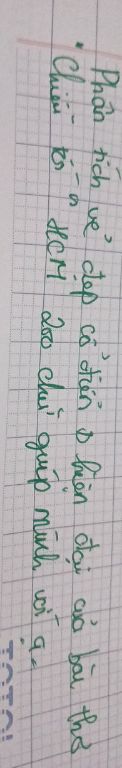 Phân tích vẻ đẹp cổ điển & hiện đại của bài thơ
"Chiều tối" HCM 200 chữ giúp mình với ạ.